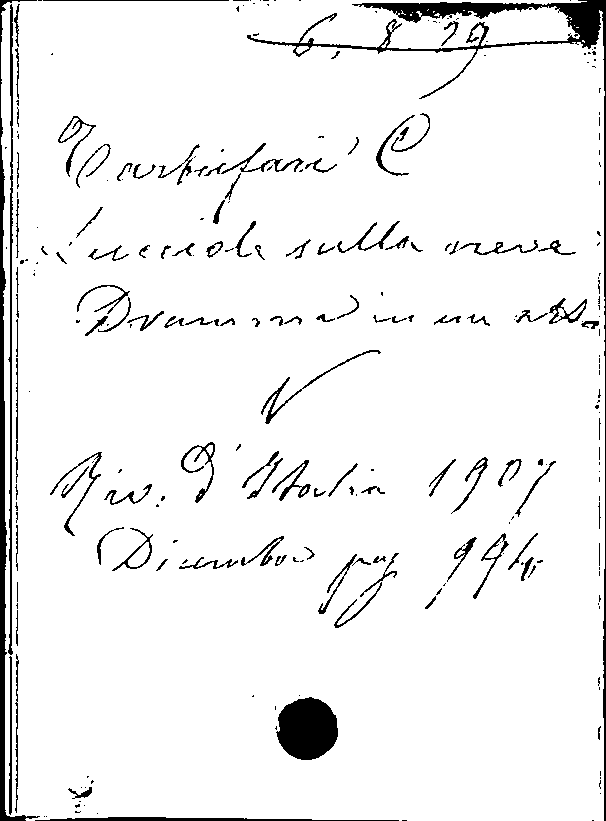 6, 8 29
Tartufari C
Lucciole sulla neve
Dramma in un atto
V
Riv. d'Italia 1907
Dicembre pag 994